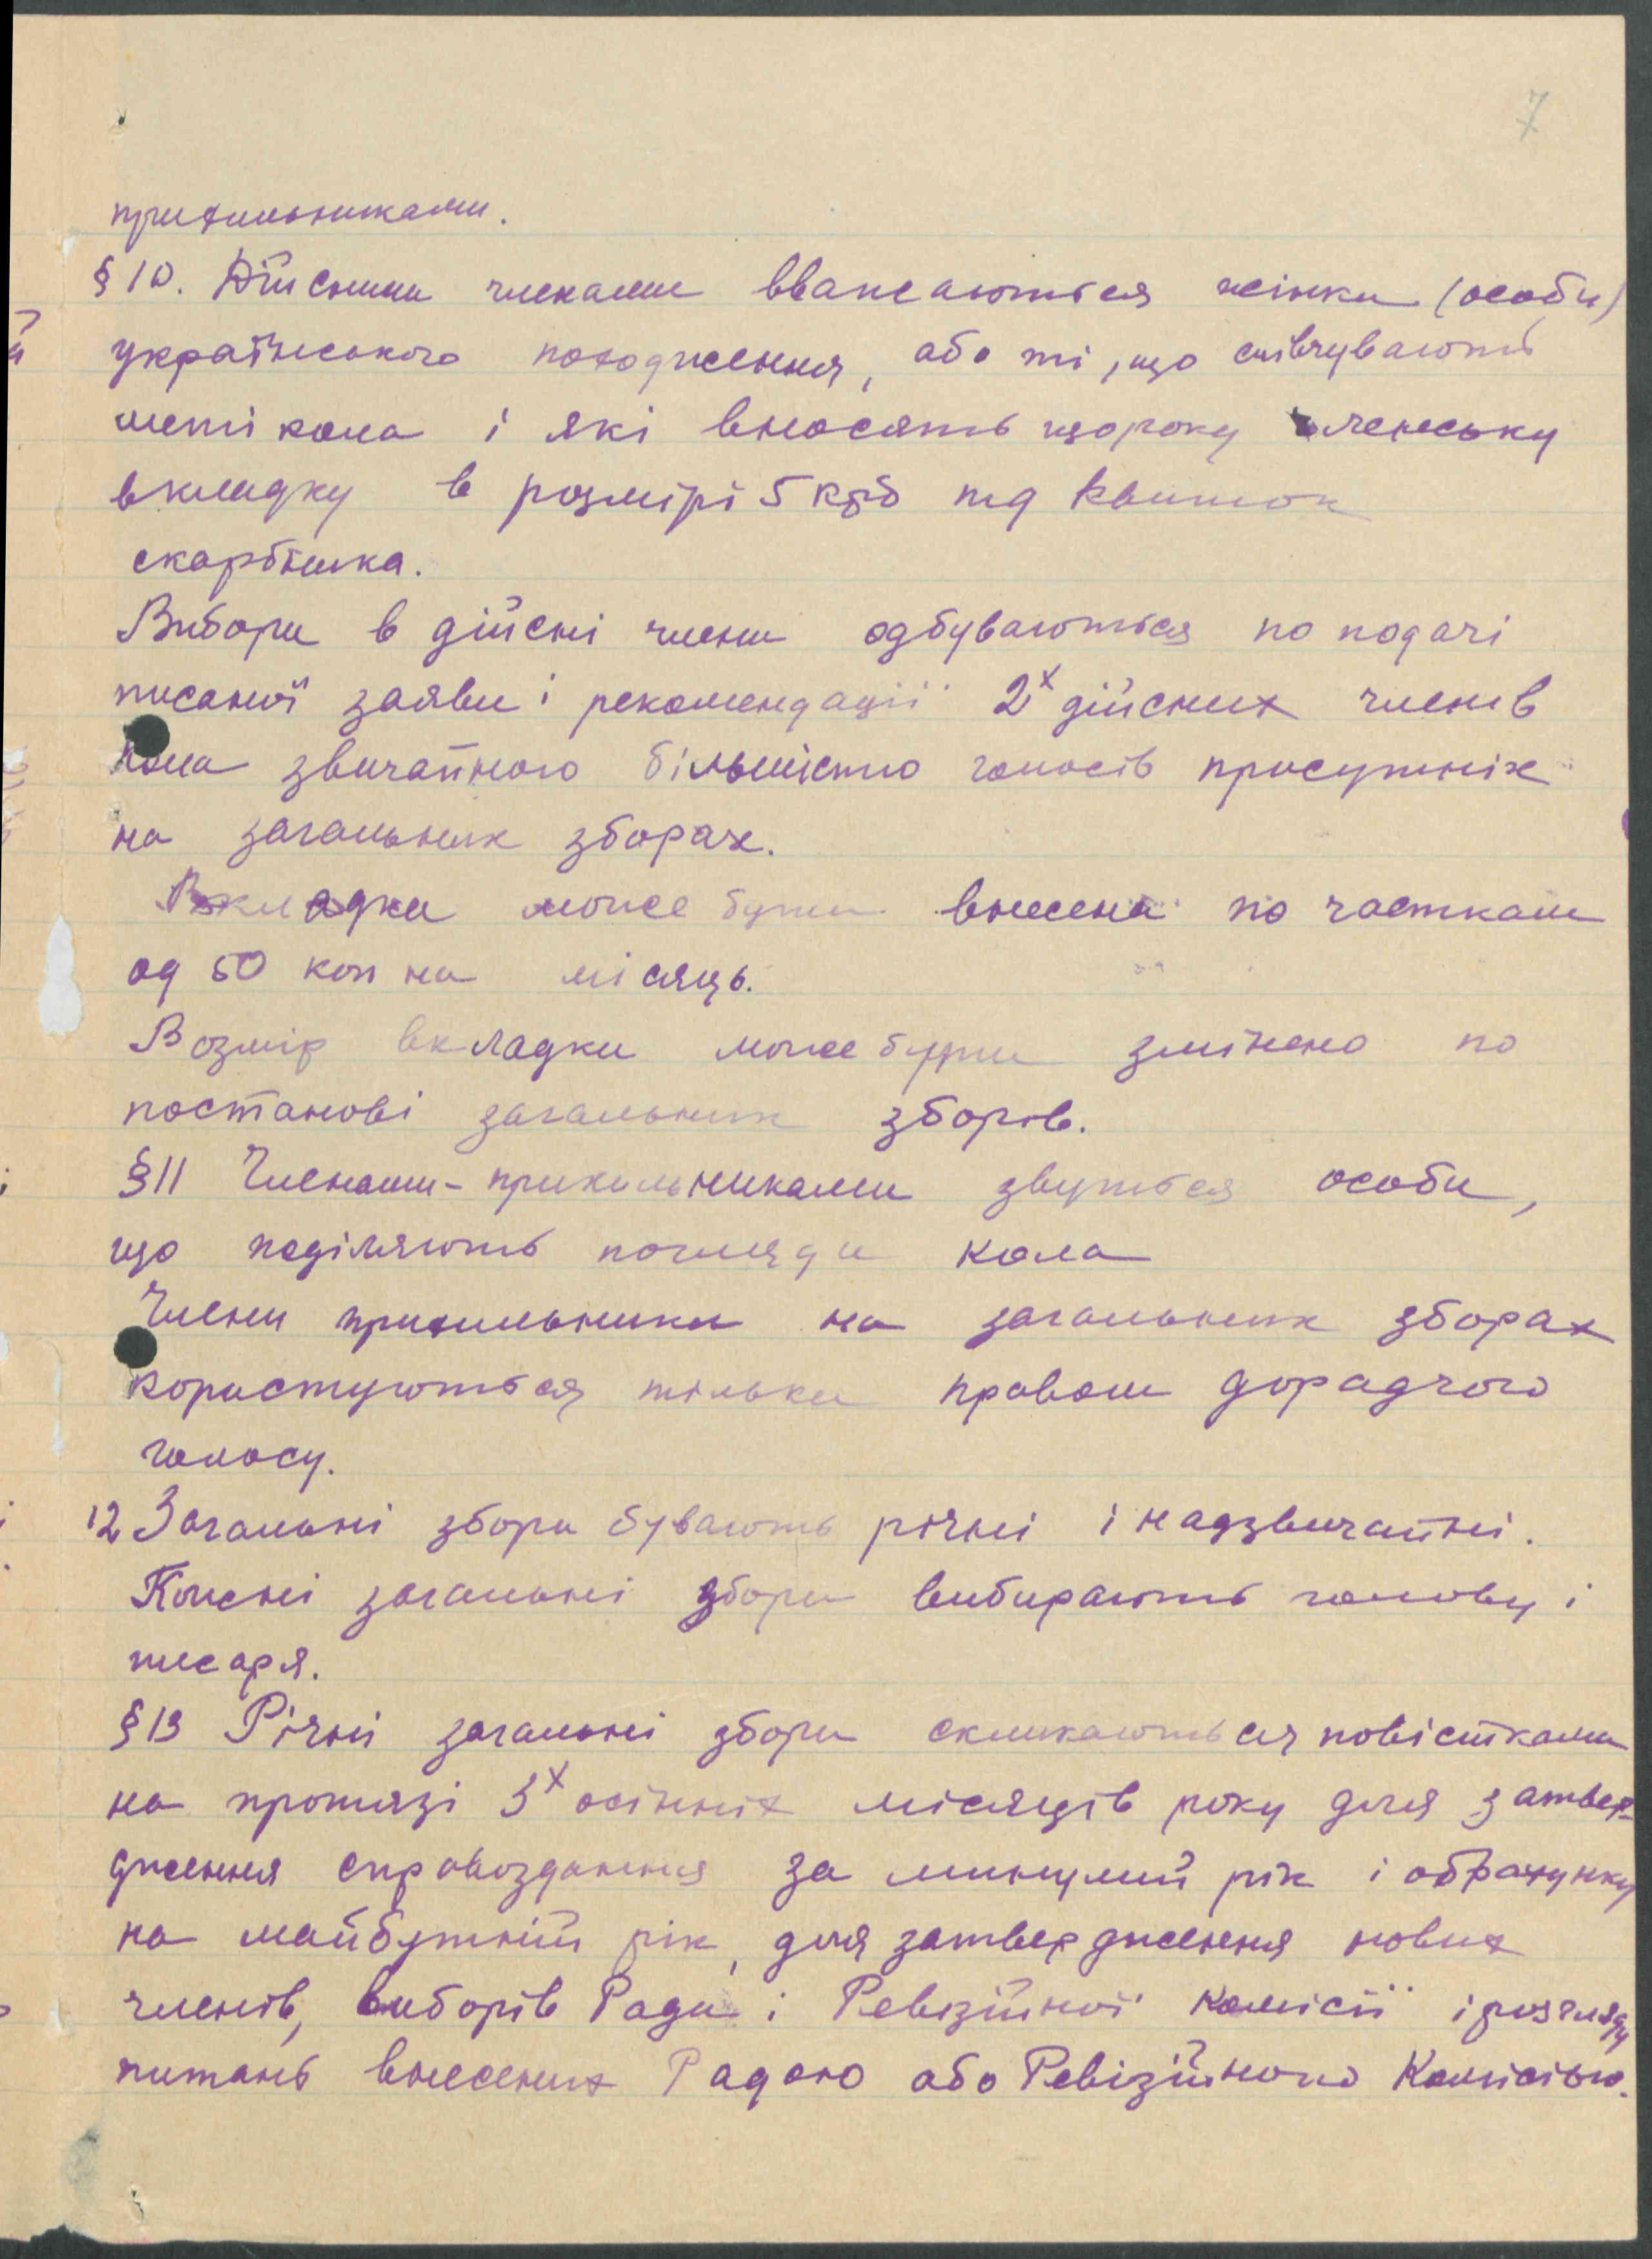 7
прихильниками.
§ 10. Дійсними членами вважаються жінки (особи)
українського походження, або ті, що співчувають
меті кола і які вносять щороку членську
вкладку в розмірі 5 крб під квиток
скарбника.
Вибори в дійсні члени одбуваються по подачі
писаної заяви і рекомендації 2х дійсних членів
кола звичайною більшістю голосів присутніх
на загальних зборах.
Вкладка може бути внесена по часткам
од 50 коп на місяць.
Розмір вкладки може бути змінено по
постанові загальних зборів.
§ 11 Членами-прихильниками звуться особи,
що поділяють погляди кола
Члени прихильники на загальних зборах
користуються тільки правом дорадчого
голосу.
12 Загальні збори бувають річні і надзвичайні.
Кожні загальні збори вибирають голову і
писаря.
§ 13 Річні загальні збори скликаються повістками
на протязі 3х осінніх місяців року для затвер-
дження справоздання за минулий рік і обрахунку
на майбутній рік, для затвердження нових
членів, виборів Ради і Ревізійної комісії і розгляду
питань внесених Радою або Ревізійною Комісією.